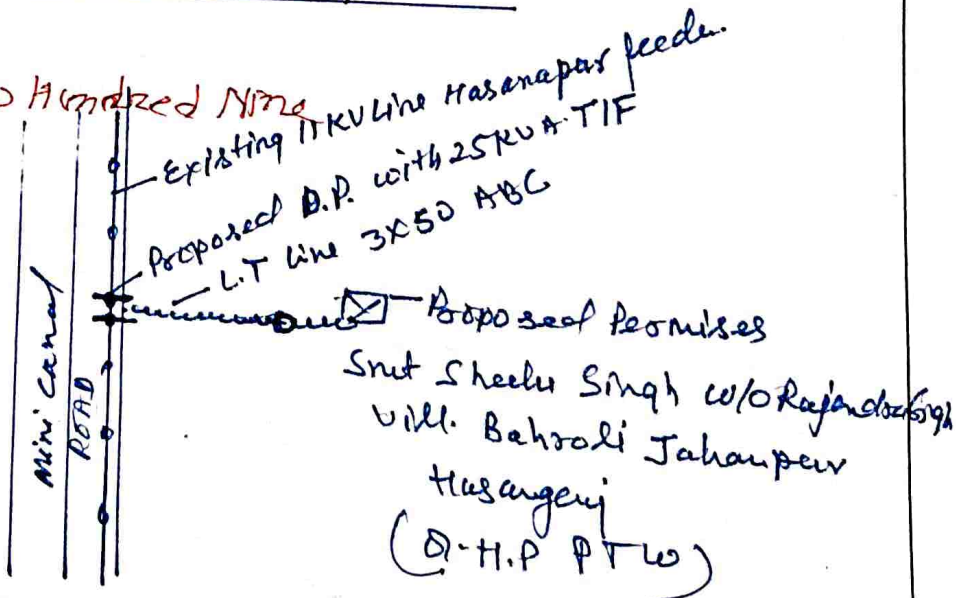 Hundred Nine
Existing 11KV Line Hasanapur feeder.
Proposed D.P. with 25KVA T/F
L.T line 3X50 ABC
Proposed Permises
Smt Sheelu Singh W/O Rajendra Singh
Vill. Bahroli Jahanpur
Hasanganj
H.P PTW)
Mini Canal
ROAD